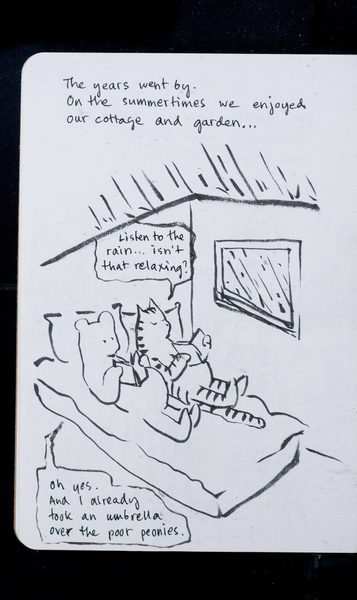 The years went by.
On the summertimes we enjoyed
our cottage and garden...
Listen to the
rain... isn't
that relaxing?
Oh yes.
And I already
took an umbrella
over the poor peonies.